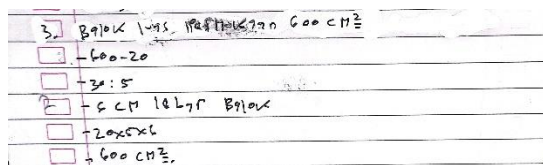 3. Balok luas Permukaan 600 CM²
- 600-20
- 30 : 5
- 6 CM lebar Balok
- 20x5x6
- 600 CM².